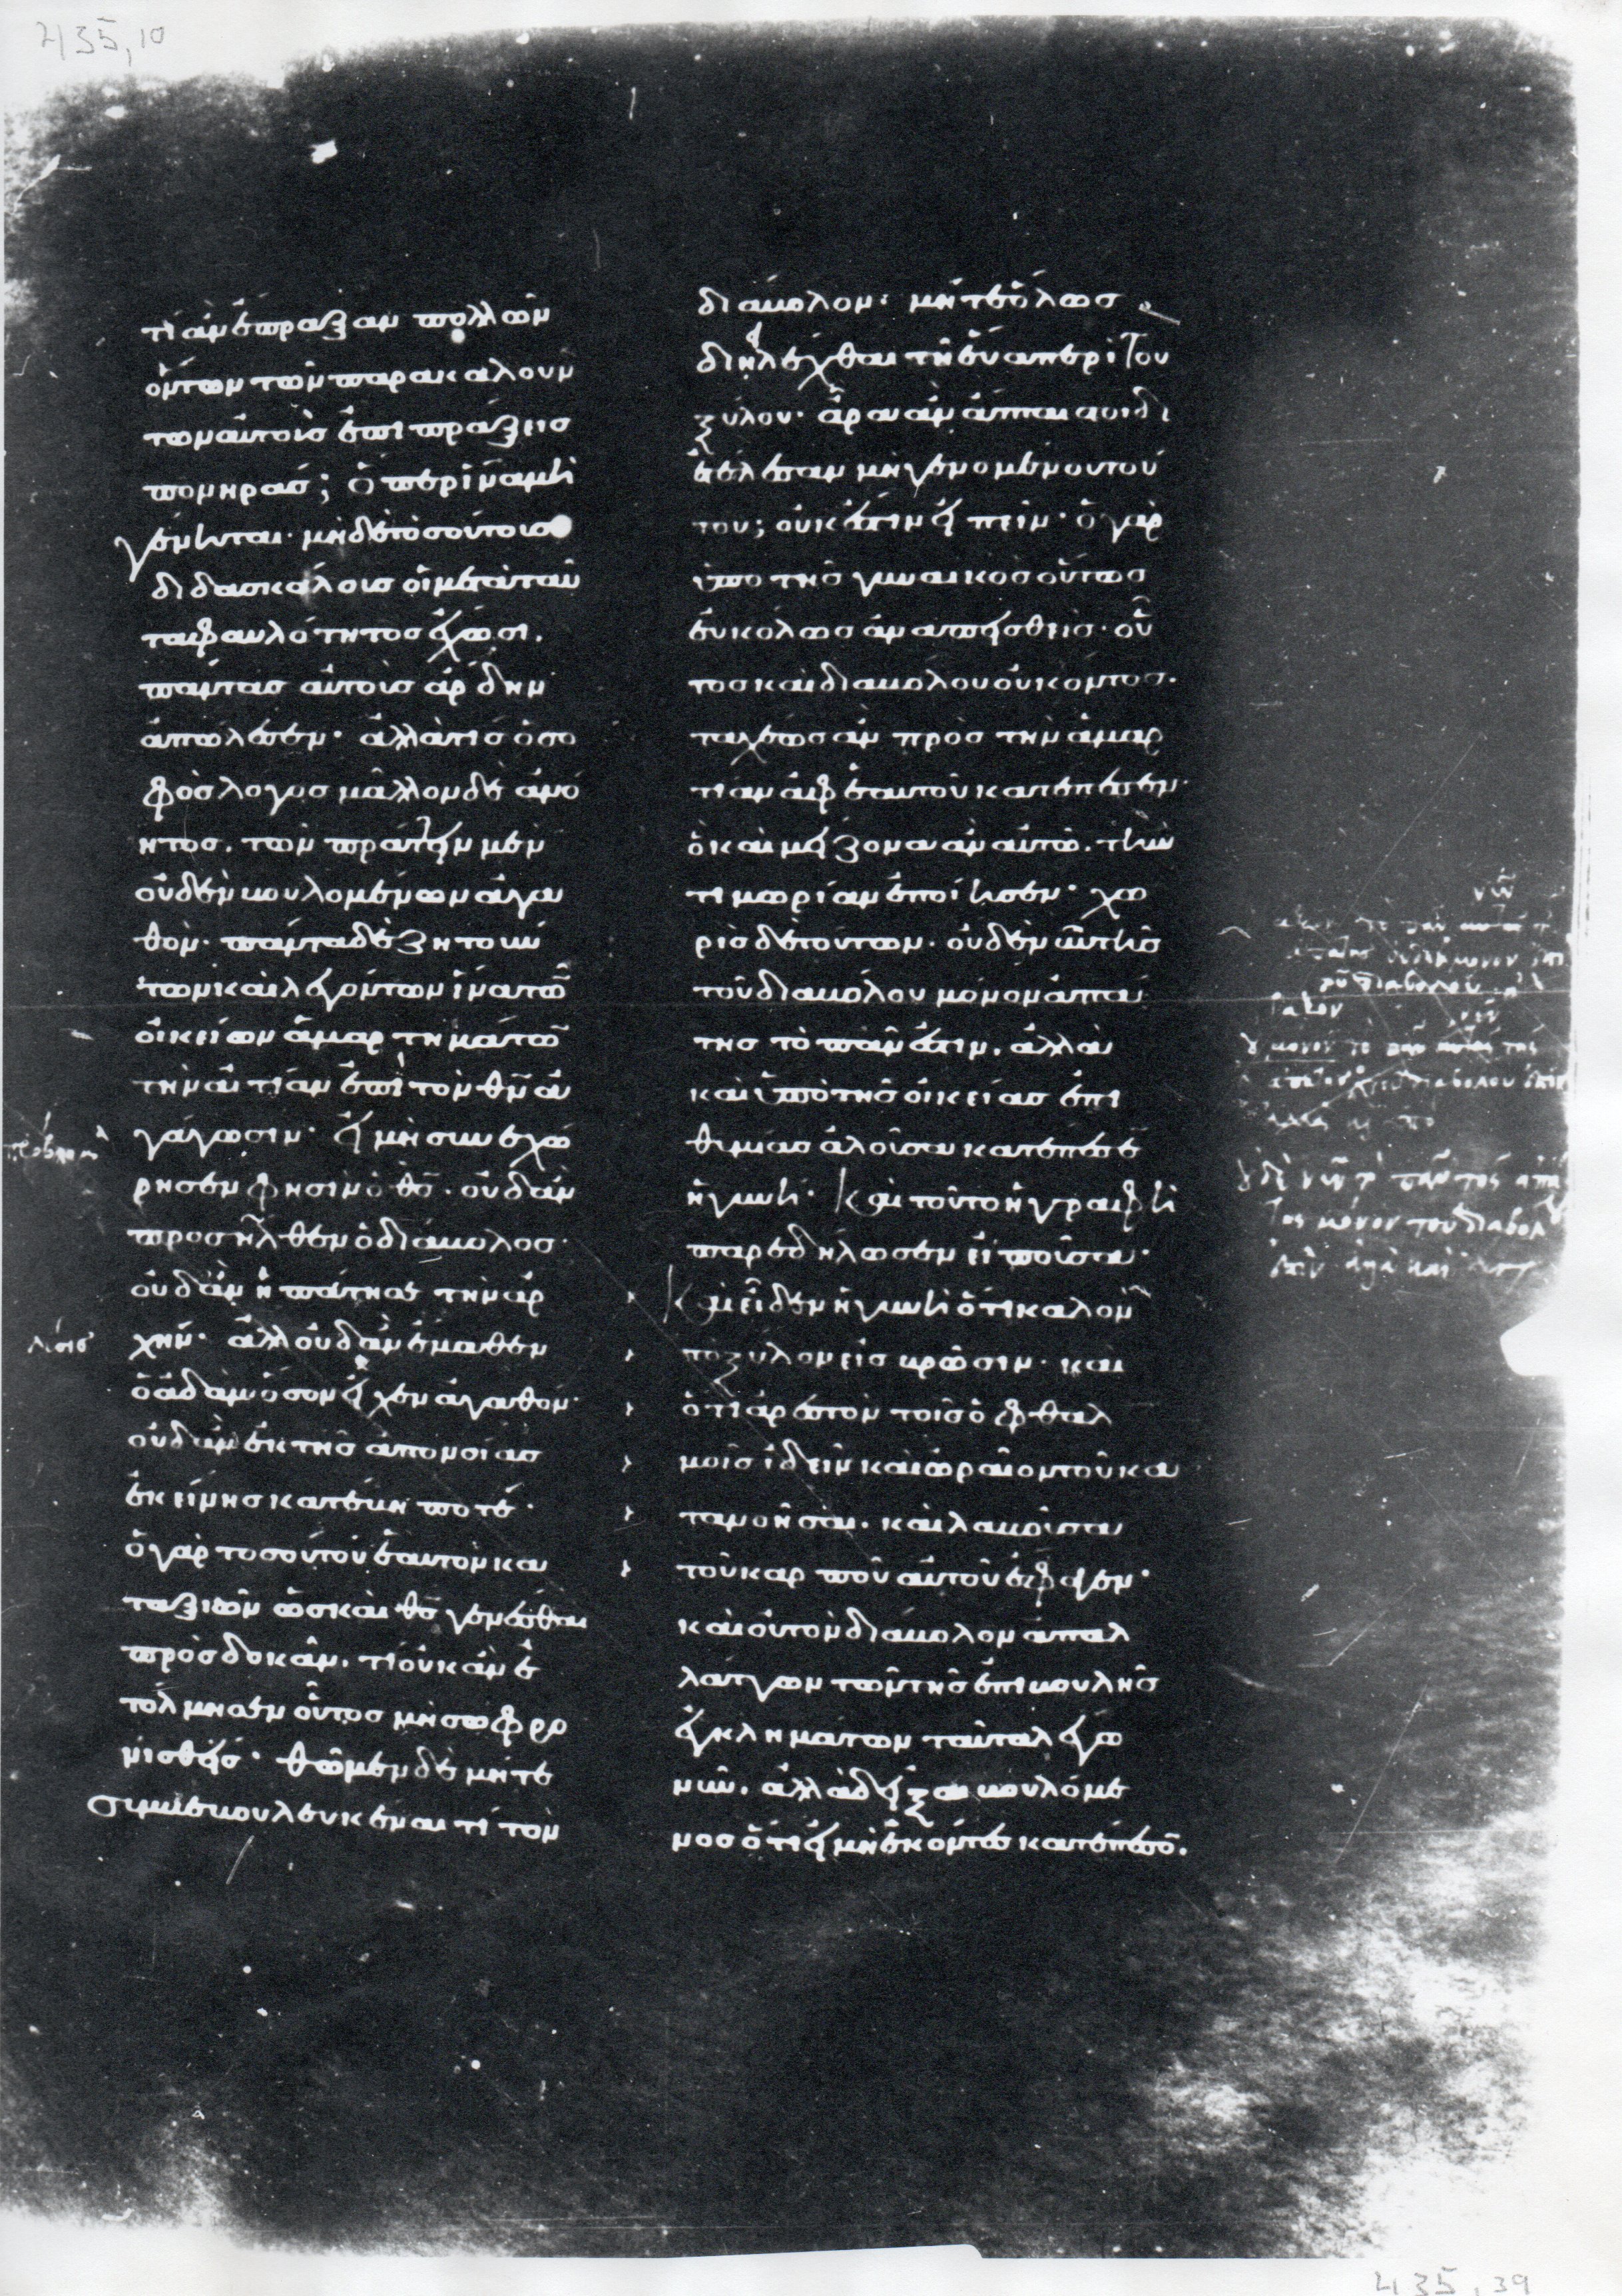 435,10
τί ἂν ἔπραξαν πολλῶν
ὄντων τῶν παρακαλούν
των αὐτοὺς ἐπὶ πράξεις
πονηράς; ὅπερ ἵνα μὴ
γένηται· μηδὲ τοσούτοις
διδασκάλοις οἱ μετὰ ταῦ
τα φαυλότητος ἔχωσι.
πάντας αὐτοὺς ἄρδην
ἀπώλεσεν· ἀλλὰ τίς ὁ σο
φὸς λόγος μᾶλλον δὲ ἀνό
ητος. τῶν πράττειν μὲν
οὐδὲν βουλομένων ἀγα
θόν· πάντα δὲ ζητούν
των καὶ λεγόντων ἵνα τῶν
οἰκείων ἁμαρτημάτων
τὴν αἰτίαν ἐπὶ τὸν θν̄ ἀ
γάγωσιν· εἰ μὴ συνεχώ
ρησεν φησὶν ὁ θς̄. οὐδ' ἂν
προσῆλθεν ὁ διάβολος·
οὐδ' ἂν ἠπάτησε τὴν ἀρ
χήν· ἀλλ' οὐδ' ἂν ἔμαθεν
ὁ ἀδὰμ ὅσον εἶχεν ἀγαθόν·
οὐδ' ἂν ἐκ τῆς ἀπονοίας
ἐκείνης κατέβη ποτέ·
ὁ γὰρ τοσούτου ἑαυτὸν κα
ταξιῶν ὡς καὶ θς̄ γενέσθαι
προσδοκᾶν. τί οὐκ ἂν ἐ
τόλμησεν οὗτος μὴ σωφρο
νισθείς· θῶμεν δὲ μήτε
συμβεβουλευκέναι τί τὸν
διάβολον· μήτε ὅλως
διηλέχθαι τῇ εὔα περὶ του
ξύλου· ἆρα ἂν ἅπται αὐτοὶ
ἔβλεπαν μὴ γενομένου τού
του; οὐκ ἔστιν εἰπεῖν· ὁ γὰρ
ὑπὸ τῆς γυναικὸς οὕτως
εὐκόλως ἀναπεισθεὶς· οὗ
τος καὶ διαβόλου οὐκ ὄντος.
ταχέως ἂν πρὸς τὴν ἁμαρ
τίαν ἀφ' ἑαυτοῦ κατέπεσεν·
ὃ καὶ μείζονα ἂν αὐτῶ. τὴν
τιμωρίαν ἐποίησεν· χω
ρὶς δὲ τούτων. οὐδὲ νῦν τῆς
τοῦ διαβόλου μόνον ἀπά
της τὸ πᾶν ἐστιν. ἀλλὰ
καὶ ὑπὸ τῆς οἰκείας ἐπι
θυμίας ἁλοῦσα κατέπεσεν
ἡ γυνή· Καὶ τοῦτο ἡ γραφὴ
παρεδήλωσεν εἰποῦσα·
Καὶ εἶδεν ἡ γυνὴ ὅτι καλὸν
τὸ ξύλον εἰς βρῶσιν· καὶ
ὅτι ἀρεστὸν τοῖς ὀφθαλ
μοῖς ἰδεῖν καὶ ὡραῖον τοῦ κα
τανοῆσαι. καὶ λαβοῦσα
τοῦ καρποῦ αὐτοῦ ἔφαγεν·
καὶ οὐ τὸν διάβολον ἀπαλ
λάττων τῶν τῆς ἐπιβουλῆς
ἐγκλημάτων ταῦτα λέγω
νῦν. ἀλλὰ δεῖξαι βουλόμε
νος ὅτι εἰ μὴ ἑκόντες κατέπεσον.
λύσις
435,39